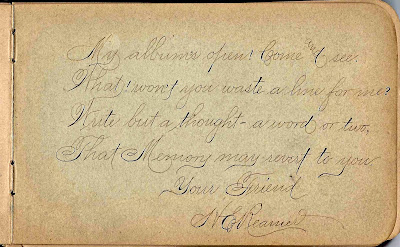 My album's open! Come and see.
What! won't you waste a line for me?
Write but a thought - a word or two,
That Memory may revert to you
Your Friend